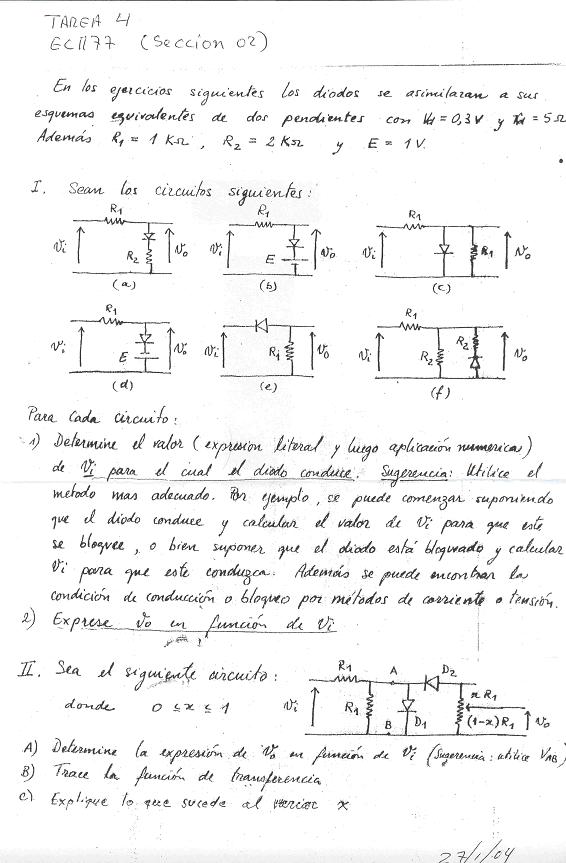 TAREA 4
EC1177 (Seccion 02)
En los ejercicios siguientes los diodos se asimilaran a sus
esquemas equivalentes de dos pendientes con Vd = 0,3 V y rd = 5 Ω
Además R1 = 1 KΩ, R2 = 2 KΩ y E = 1 V.
I. Sean los circuitos siguientes:
R1 R1 R1
Vi R2 Vo Vi E Vo Vi R1 Vo
(a) (b) (c)
R1 R1
Vi E Vo Vi R1 Vo Vi R2 R2 Vo
(d) (e) (f)
Para cada circuito:
1) Determine el valor (expresion literal y luego aplicación numerica)
de Vi para el cual el diodo conduce. Sugerencia: Utilice el
metodo mas adecuado. Por ejemplo, se puede comenzar suponiendo
que el diodo conduce y calcular el valor de Vi para que este
se bloquee, o bien suponer que el diodo está bloqueado y calcular
Vi para que este conduzca. Además se puede encontrar la
condición de conducción o bloqueo por métodos de corriente o tensión.
2) Exprese Vo en función de Vi
II. Sea el siguiente circuito:
donde 0 ≤ x ≤ 1
R1 A D2
Vi R1 D1 x R1
B (1-x)R1 Vo
A) Determine la expresión de Vo en función de Vi (Sugerencia: utilice VAB)
B) Trace la función de transferencia
C) Explique lo que sucede al variar x
27/1/04